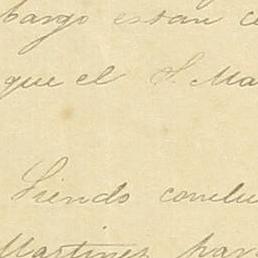 bargo estan c
que el S. Ma
Siendo conclu
Martinez par